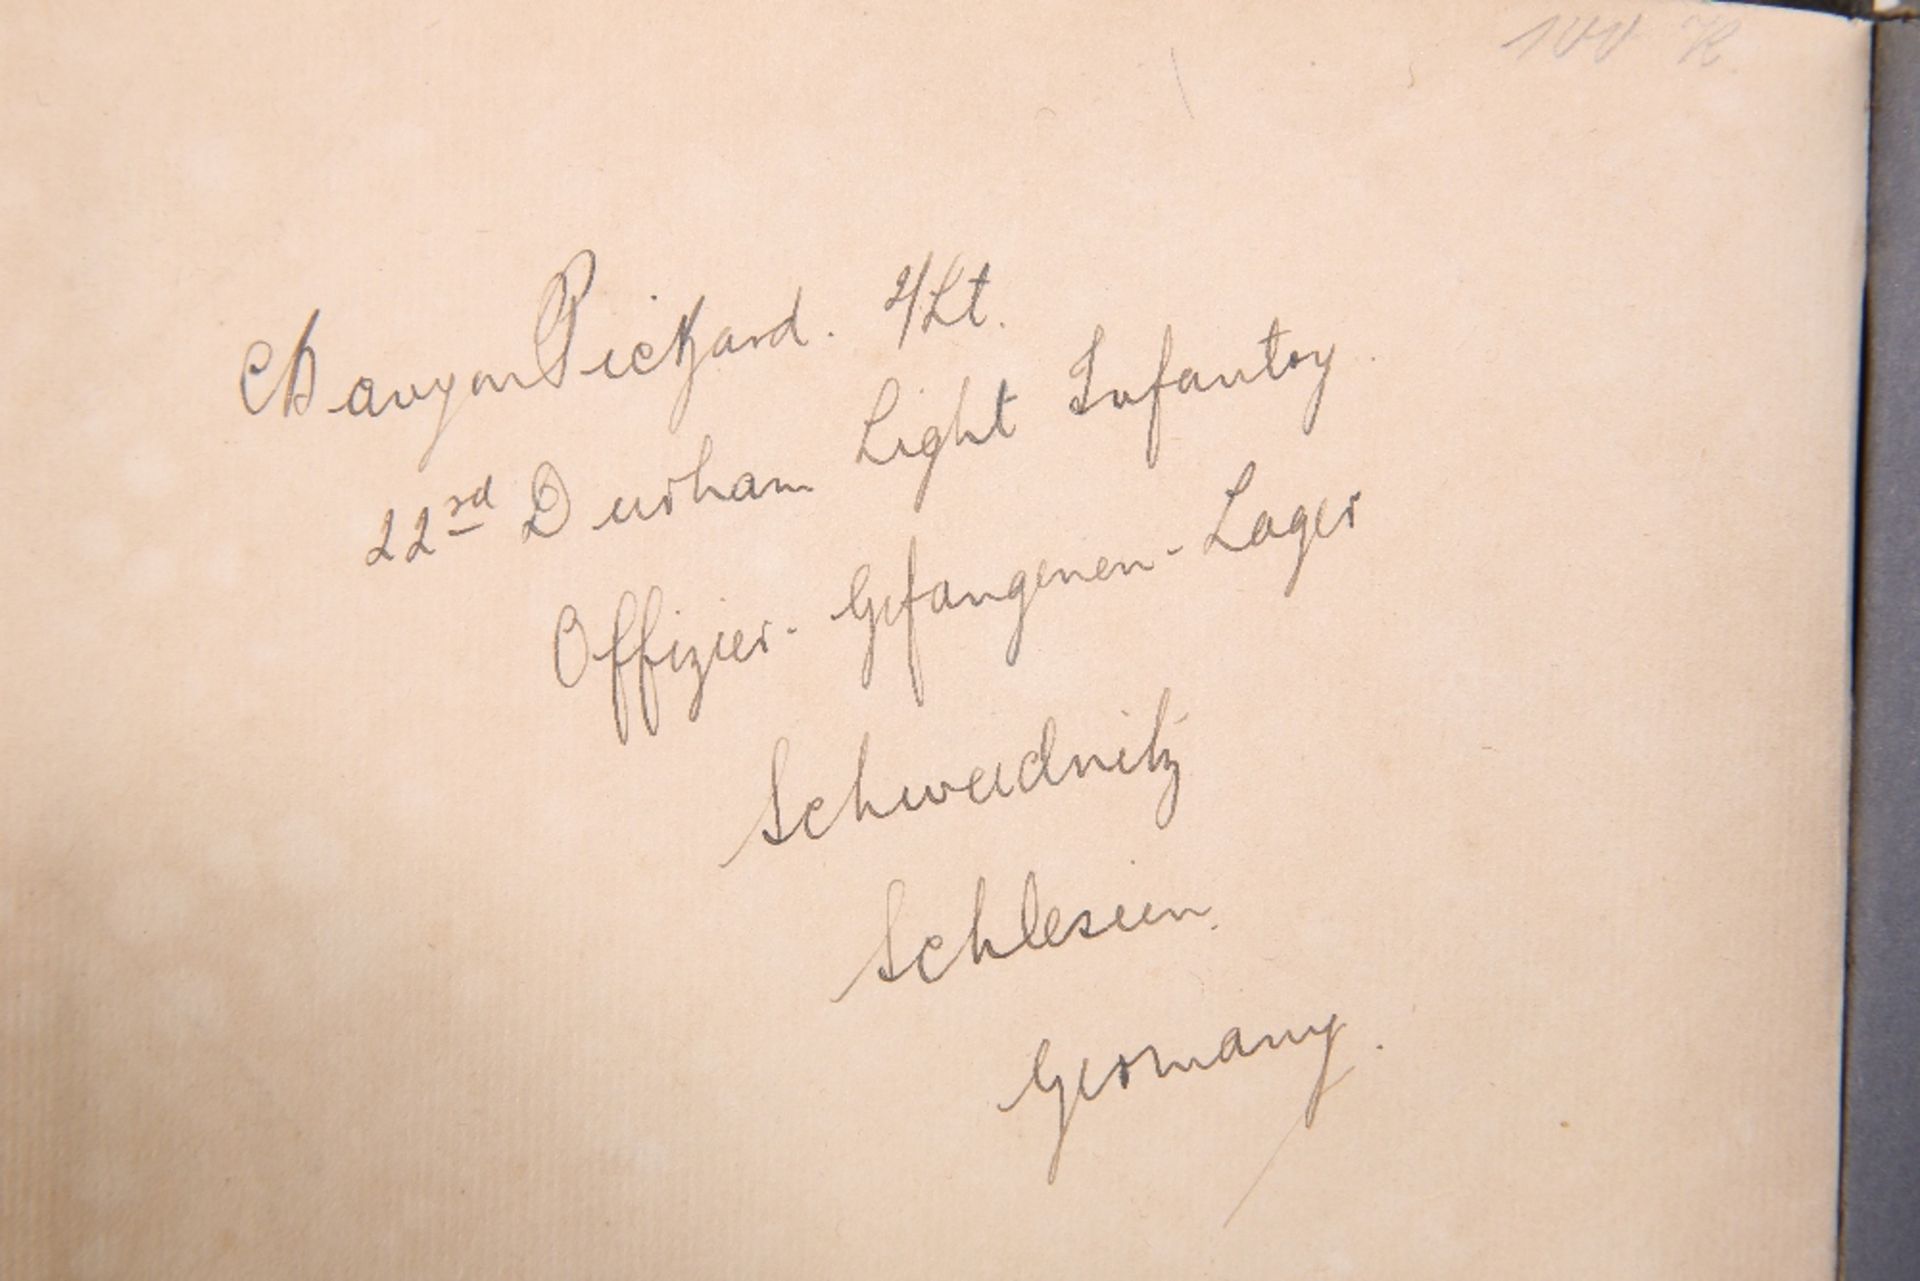 100 K
Pickard. 2/Lt.
22rd Durham Light Infantry.
Offizier - Gefangenen - Lager
Schweidnitz
Schlesien.
Germany.